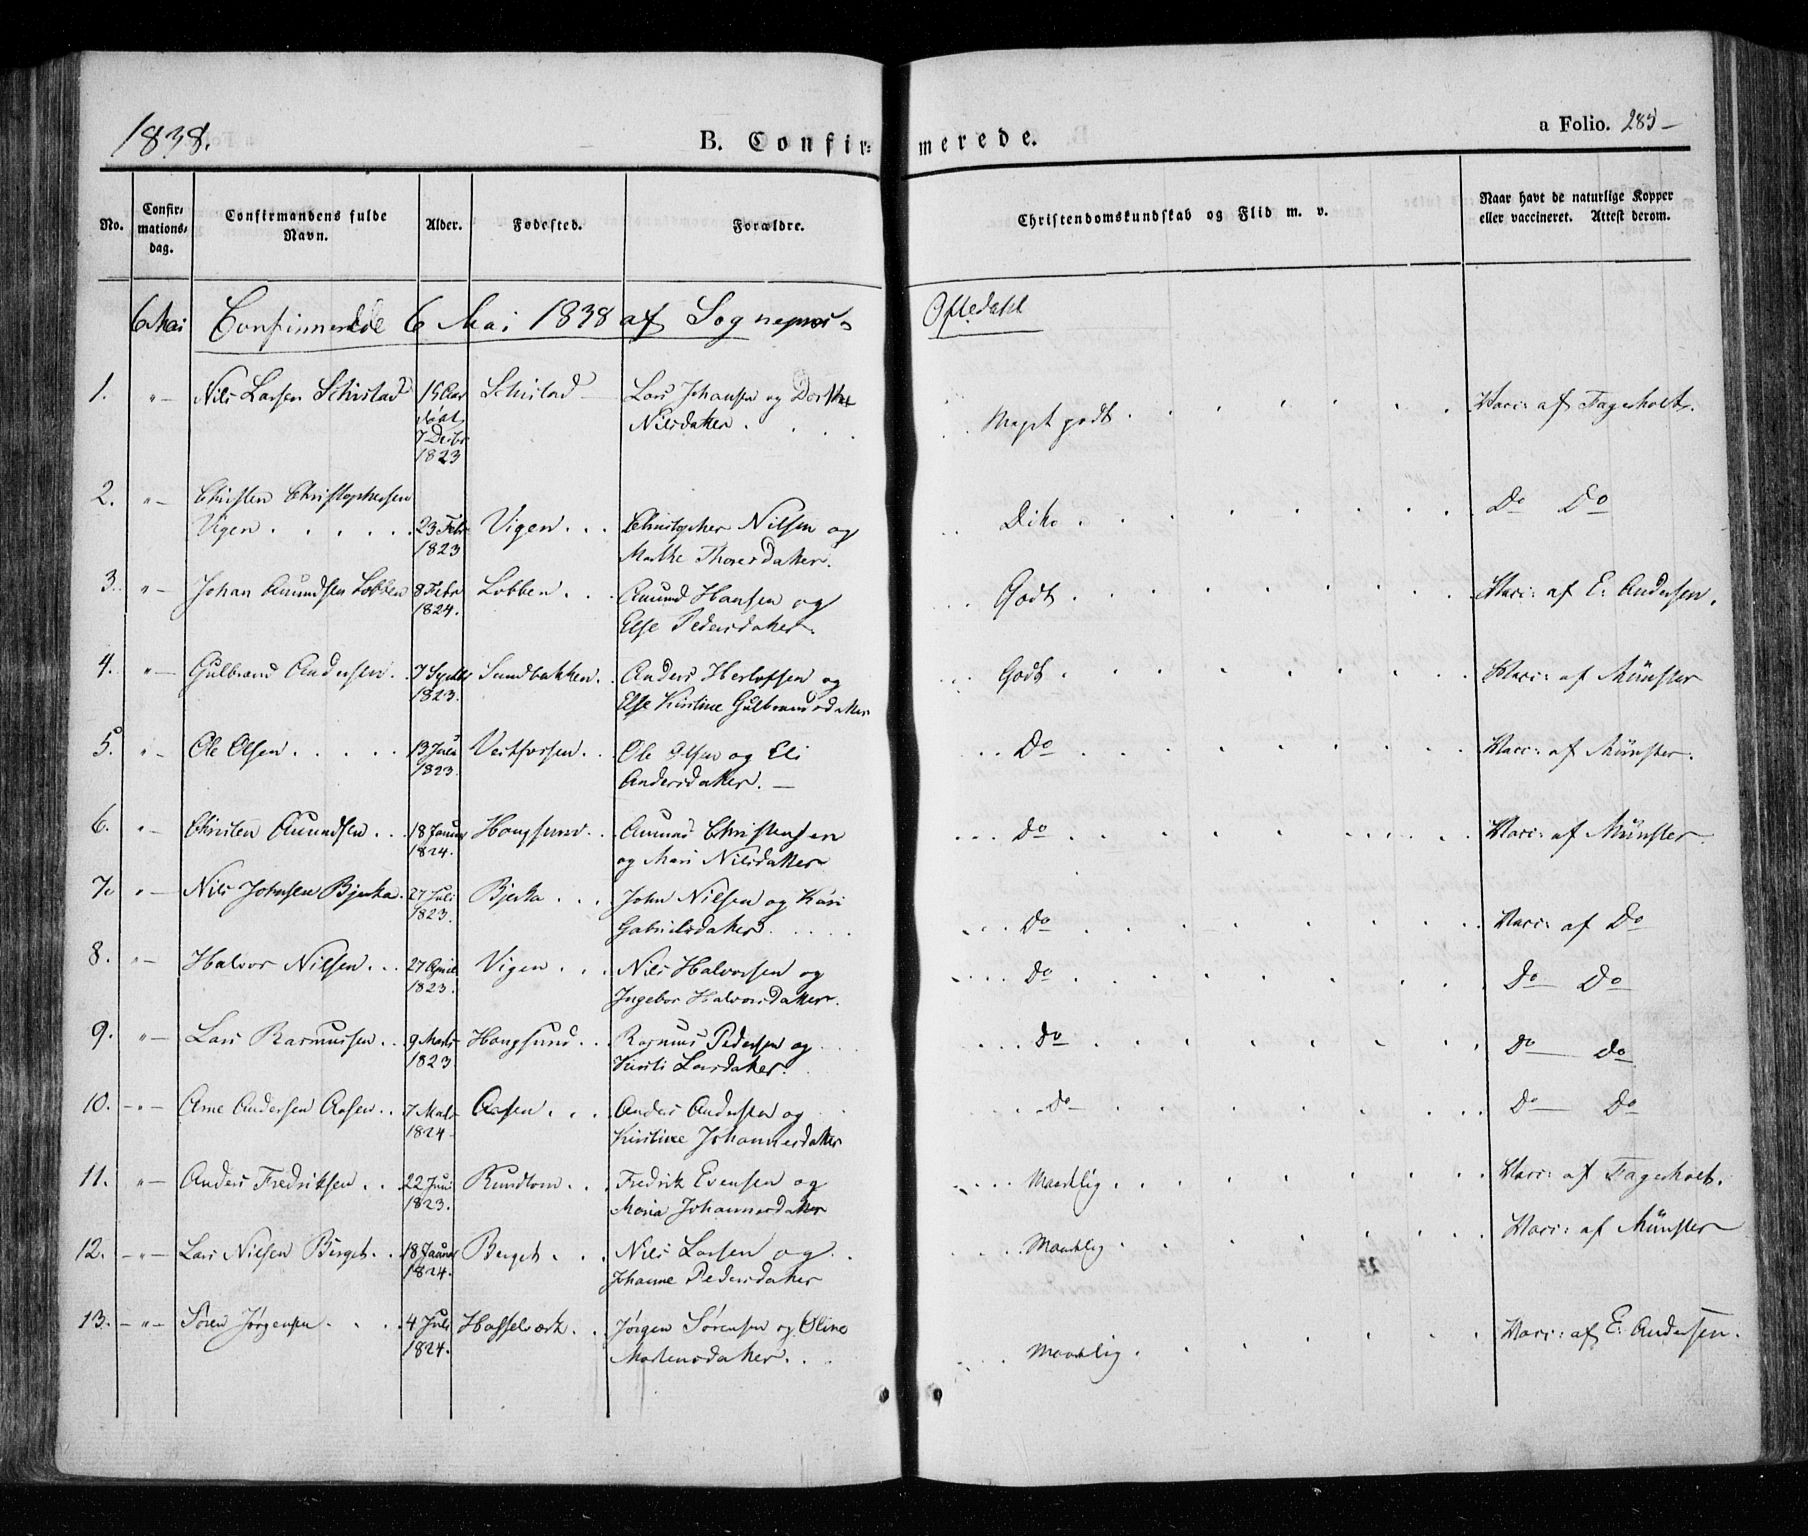 1838.
B. Confir- merede.
a Folio. 285
No.
Confir-
mations-
dag.
Confirmandens fulde
Navn.
Alder.
Fødested.
Forældre.
Christendomskundskab og Flid m. v.
Naar havt de naturlige Kopper
eller vaccineret. Attest derom.
6 Mai Confirmerede 6 Mai 1838 af Sognepr: Oftedahl
1. "— Nils Larsen Schistad 15 Aar Schistad Lars Johansen og Dorthe
Nilsdatter Meget godt Vacc: af Fagerholt.
7 Decbr
1823
2. "— Christen Christophersen
Vigen 23 Febr Vigen Christopher Nilsen og Dito Do Do
1823 Marthe Thoresdatter.
3. "— Johan Amundsen Lobben 8 Febr Lobben Amund Hansen og Godt Vacc: af E: Andersen.
1824. Else Pedersdatter.
4. "— Gulbrand Andersen 7 Septbr Sundbakken Anders Herlofsen og Godt Vacc: af Münster
1823. Else Kirstine Gulbrandsdatter
5. "— Ole Olsen 13 Juli Vestfossen Ole Olsen og Eli Do Vacc: af Münster.
1823. Andersdatter.
6. "— Christen Amundsen 18 Januar Hougsund Amund Christensen Do Vacc: af Münster
1824. og Mari Nilsdatter
7. "— Nils Johnsen Bjerka 27 Juli Bjerka John Nilsen og Kari
1823. Gabrielsdatter Do Vacc: af Do
8. "— Halvor Nilsen 27 April Vigen Nils Halvorsen og Do Do Do
1823. Ingebor Halvorsdatter.
9. "— Lars Rasmussen 9 Marts Hougsund Rasmus Pedersen og Do Do Do
1823 Kirsti Larsdatter.
10. "— Arne Andersen Aasen 7 Aasen Anders Andersen og Do Do Do
1824 Kirstine Johannesdatter
11. "— Anders Fredriksen 22 Juni Rundtom Fredrik Evensen og Maadelig Vacc: af Fagerholt.
1823. Maria Johannesdatter
12. "— Lars Nilsen Berget 18 Januar Berget Nils Larsen og Maadelig Vacc: af Münster
1824. Johanne Pedersdatter
13. "— Søren Jørgensen 4 Juli Hasselværk Jørgen Sørensen og Oline Maadelig Vacc: af E: Andersen.
1824. Mortensdatter.